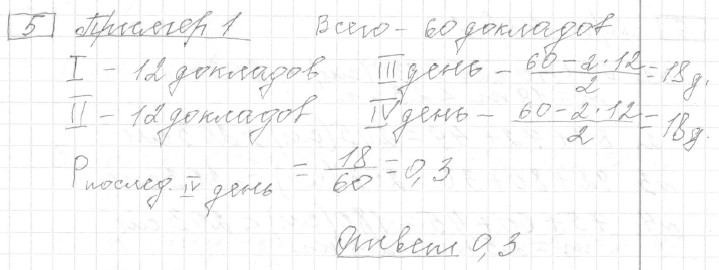 5 Пример 1 Всего – 60 докладов
I – 12 докладов III день – (60 – 2 · 12)/2 = 18 д.
II – 12 докладов IV день – (60 – 2 · 12)/2 = 18 д.
P послед. IV день = 18/60 = 0,3
Ответ 0,3